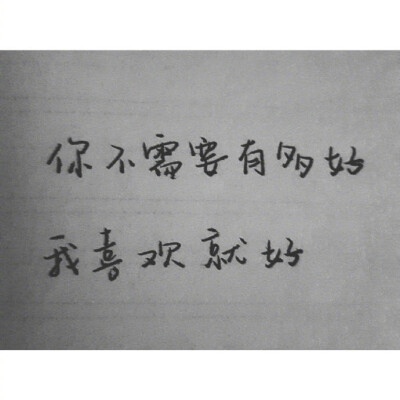 你不需要有多好
我喜欢就好